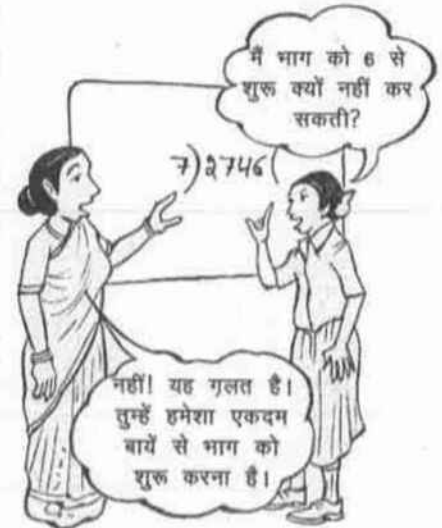 मैं भाग को 6 से
शुरू क्यों नहीं कर
सकती?
7)2746(
नहीं! यह ग़लत है।
तुम्हें हमेशा एकदम
बायें से भाग को
शुरू करना है।